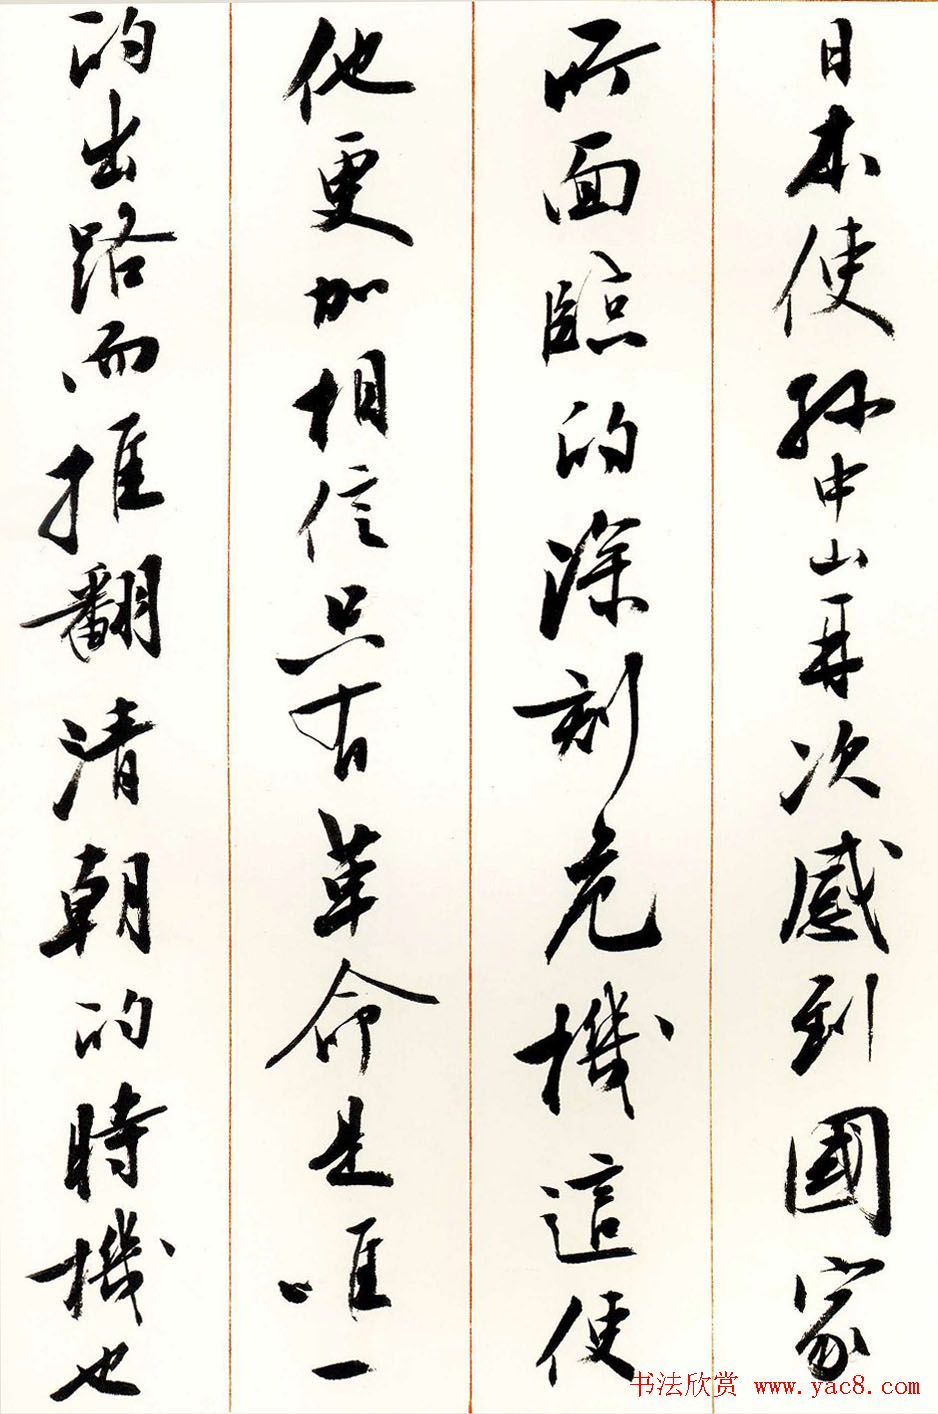 日本使孫中山再次感到國家
所面臨的深刻危機這使
他更加相信只有革命是唯一
的出路而推翻清朝的時機也
书法欣赏 www.yac8.com